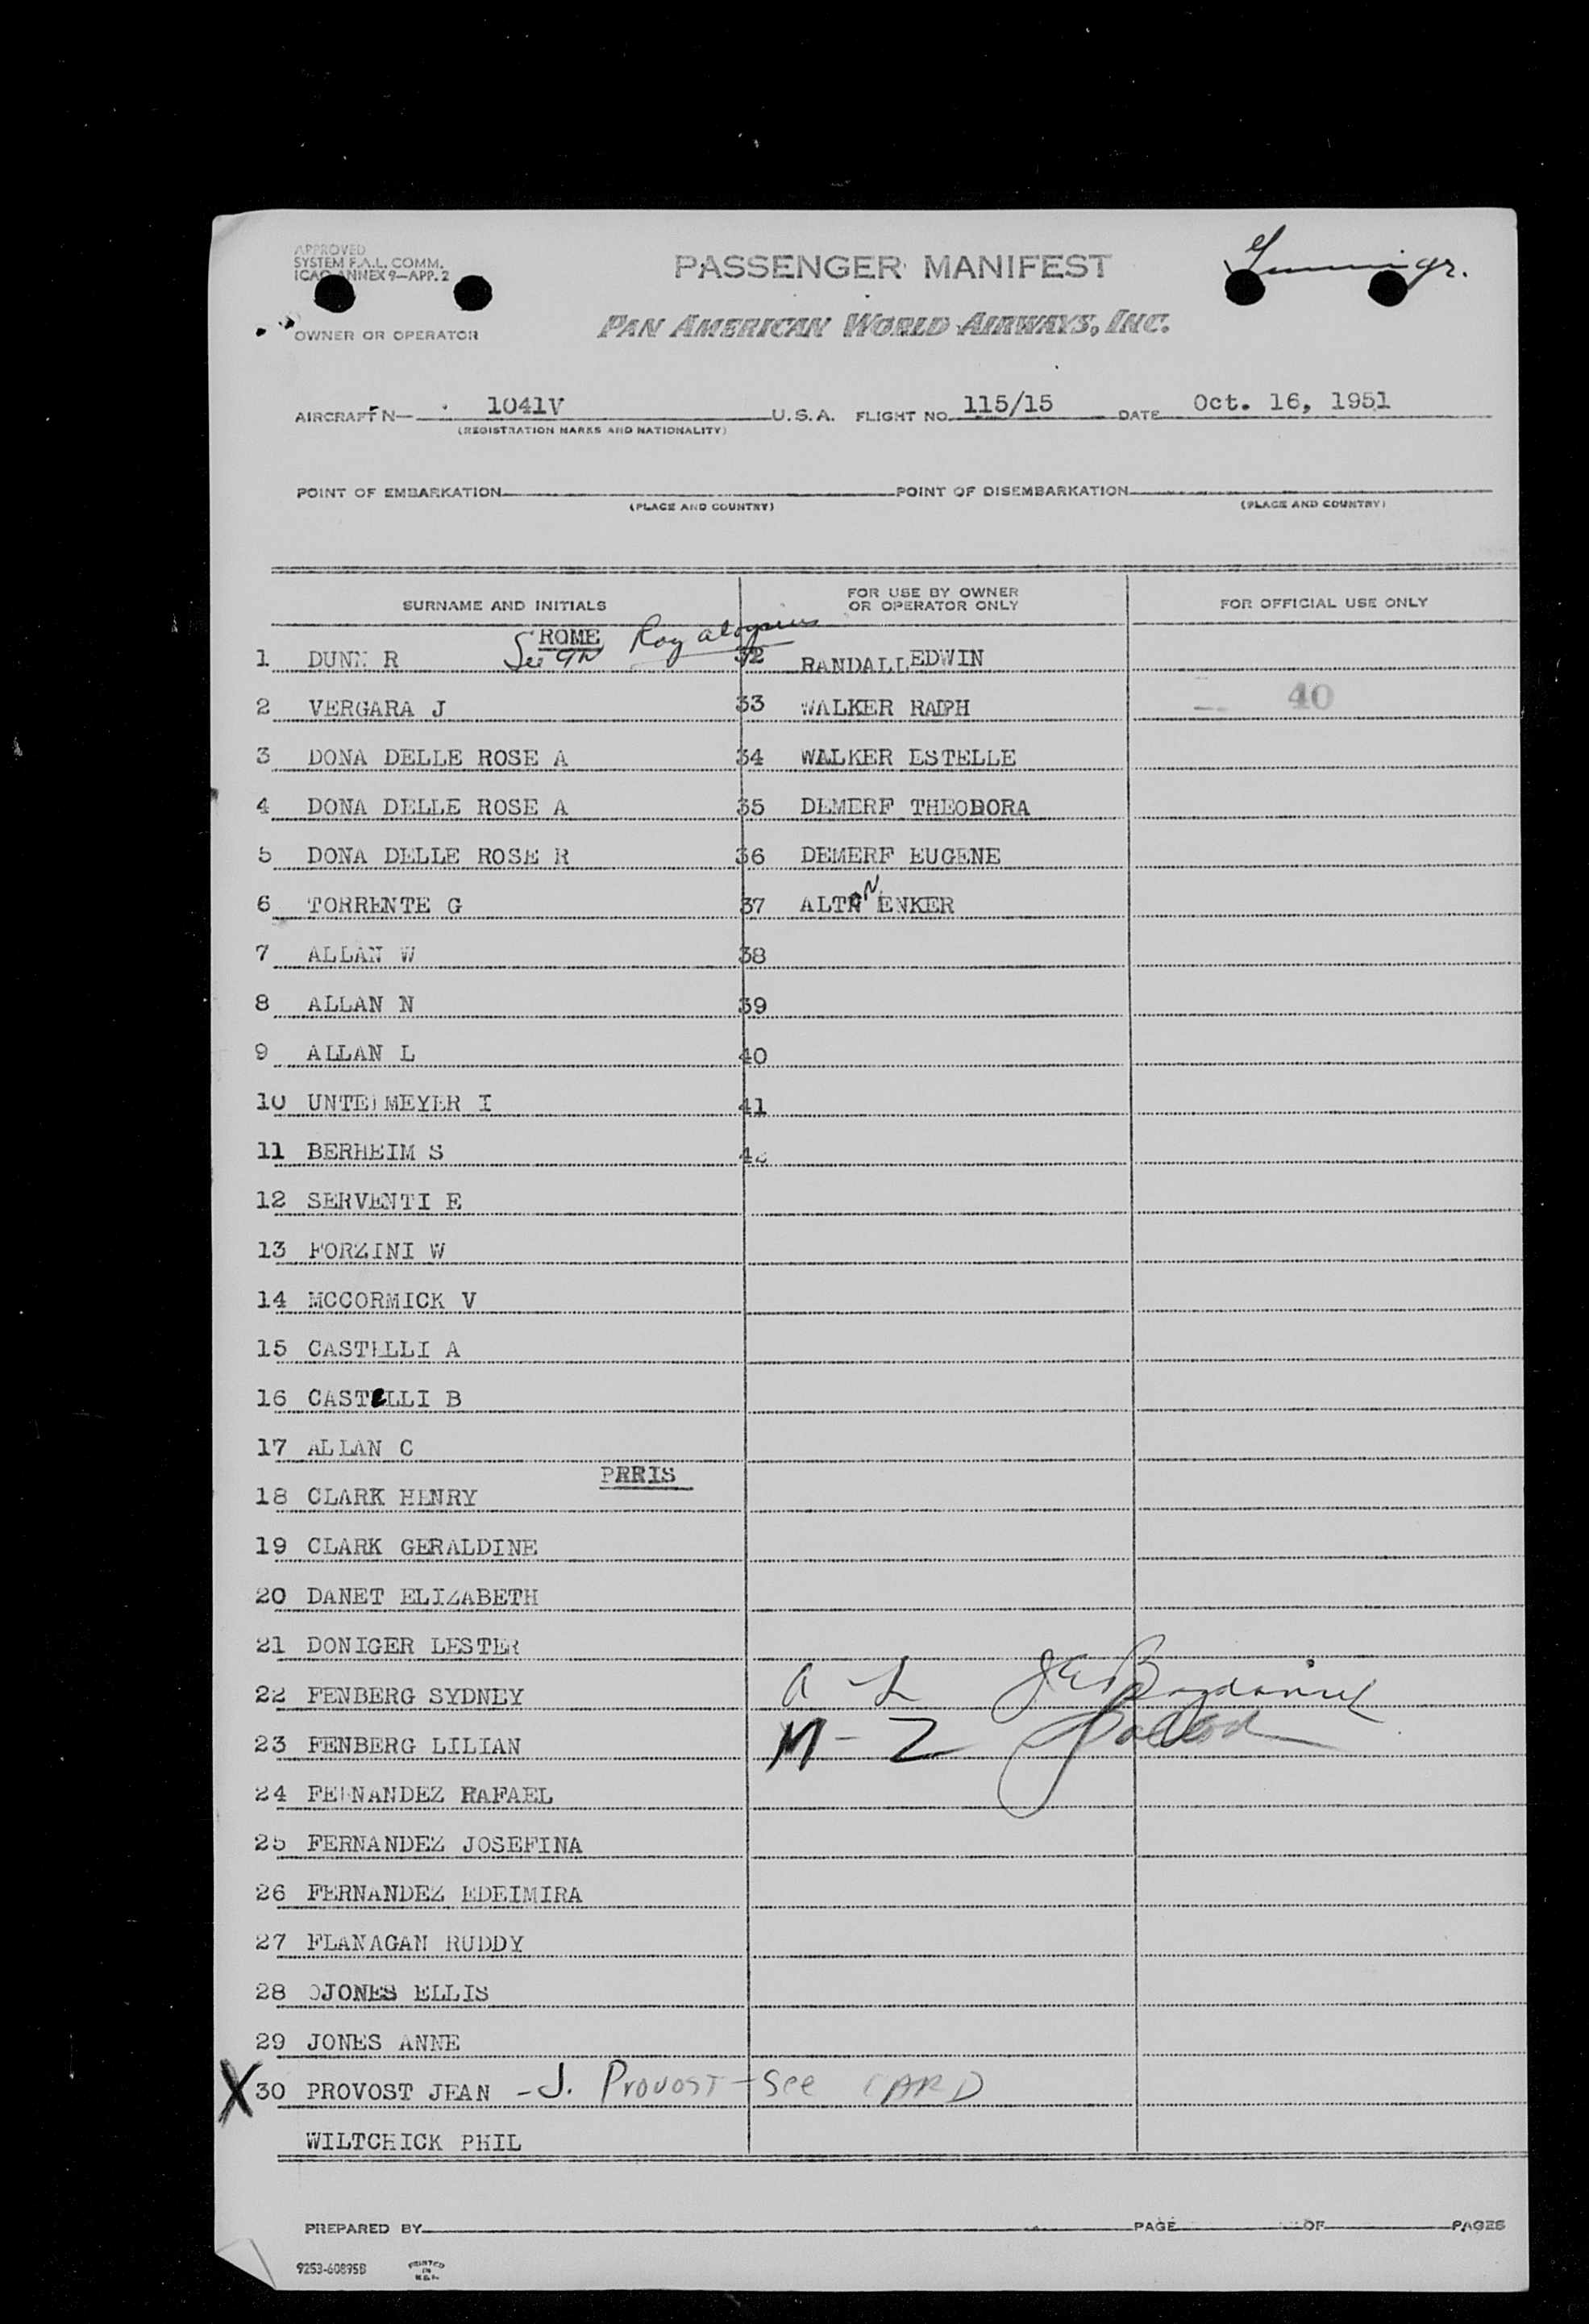 APPROVED
SYSTEM F.A.L. COMM.
ICAO ANNEX 9—APP. 2
PASSENGER MANIFEST
OWNER OR OPERATOR
PAN AMERICAN WORLD AIRWAYS, INC.
AIRCRAFT N— 1041V U.S.A. FLIGHT NO. 115/15 DATE Oct. 16, 1951
(REGISTRATION MARKS AND NATIONALITY)
POINT OF EMBARKATION POINT OF DISEMBARKATION
(PLACE AND COUNTRY) (PLACE AND COUNTRY)
SURNAME AND INITIALS FOR USE BY OWNER OR OPERATOR ONLY FOR OFFICIAL USE ONLY
ROME Roy
1 DUNN R See 32 RANDALL EDWIN
2 VERGARA J 33 WALKER RALPH 40
3 DONA DELLE ROSE A 34 WALKER ESTELLE
4 DONA DELLE ROSE A 35 DEMERF THEODORA
5 DONA DELLE ROSE R 36 DEMERF EUGENE
6 TORRENTE G 37 ALTAN ENKER
7 ALLAN W 38
8 ALLAN N 39
9 ALLAN L 40
10 UNTERMEYER I 41
11 BERHEIM S 42
12 SERVENTI E
13 FORZINI W
14 MCCORMICK V
15 CASTELLI A
16 CASTELLI B
17 ALLAN C
PARIS
18 CLARK HENRY
19 CLARK GERALDINE
20 DANET ELIZABETH
21 DONIGER LESTER
22 FENBERG SYDNEY A - L
23 FENBERG LILIAN M - Z
24 FERNANDEZ RAFAEL
25 FERNANDEZ JOSEFINA
26 FERNANDEZ EDEIMIRA
27 FLANAGAN RUDDY
28 JONES ELLIS
29 JONES ANNE
X 30 PROVOST JEAN - J. PROVOST - See CARD
WILTCHICK PHIL
PREPARED BY PAGE OF PAGES
9253-60895B PRINTED IN U.S.A.